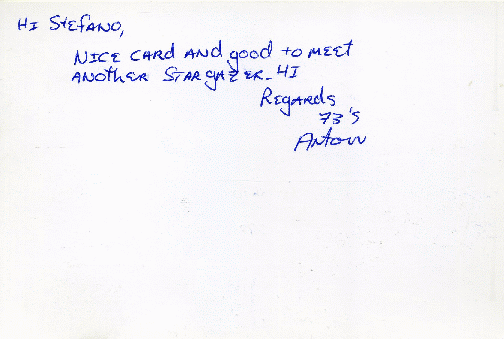 HI Stefano,
NICE CARD AND good to MEET
ANOTHER STARgAZER_ HI
Regards
73's
Anton